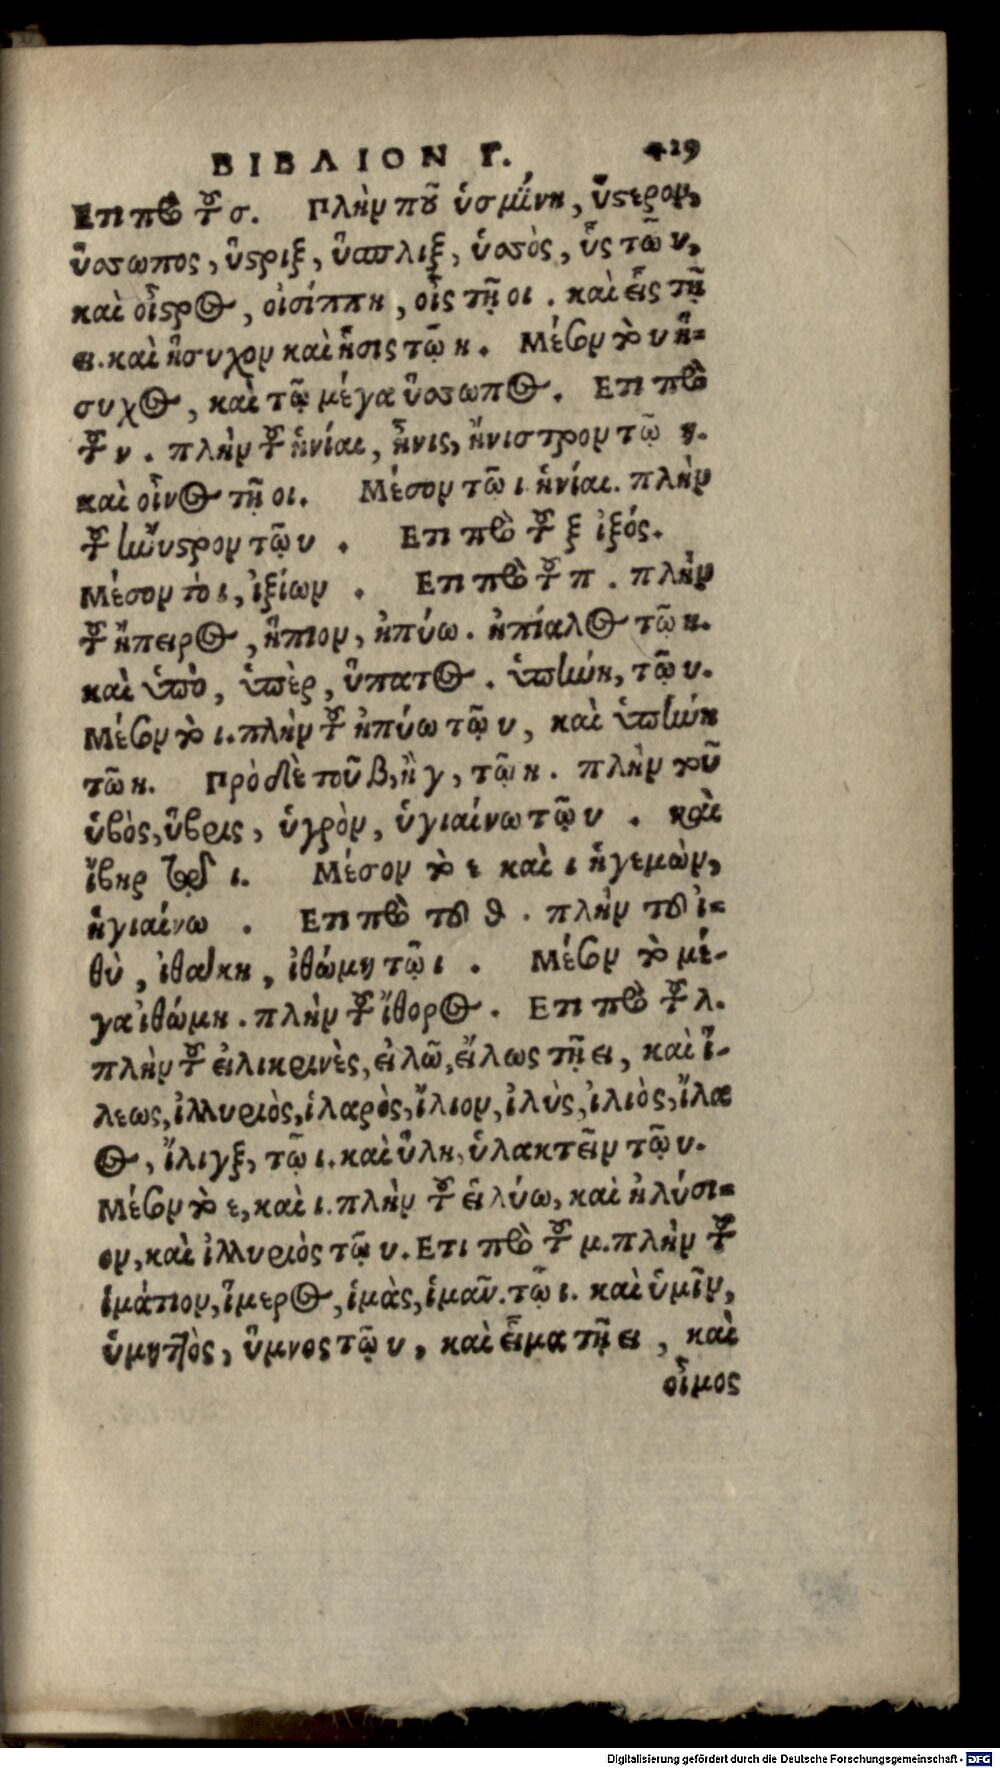 ΒΙΒΛΙΟΝ Γ. 429
Ετι πρὸ τοῦ σ. Πλὴν τοῦ ὑσμίνη, ὕστερον,
ὕσσωπος, ὕστριξ, ὕσπλιξ, ὑσσὸς, ὗς τῷ υ,
καὶ οἶστρος, οἰσίππη, οἶς τῇ οι. καὶ εἰς τῇ
ει. καὶ ἥσυχον καὶ ἧσις τῷ η. Μέσον τὸ υ ἥ-
συχος, καὶ τῷ μέγα ὕσσωπος. Ετι πρὸ
τοῦ ν. πλὴν τοῦ ἡνίαι, ἦνις, ἤνιστρον τῷ η.
καὶ οἶνος τῇ οι. Μέσον τῷ ι ἡνίαι. πλὴν
τοῦ ἤνυστρον τῷ υ. Ετι πρὸ τοῦ ξ ἰξός.
Μέσον τὸ ι, ἰξίων. Ετι πρὸ τοῦ π. πλὴν
τοῦ ἤπειρος, ἤπιον, ἠπύω. ἠπίαλος τῷ η.
καὶ ὑπὸ, ὑπὲρ, ὕπατος. ὑπήνη, τῷ υ.
Μέσον τὸ ι. πλὴν τοῦ ἠπύω τῷ υ, καὶ ὑπήνη
τῷ η. Πρὸ δὲ τοῦ β, ἢ γ, τῷ η. πλὴν τοῦ
ὑβὸς, ὕβρις, ὑγρὸν, ὑγιαίνω τῷ υ. καὶ
ἴβηρ τῷ ι. Μέσον τὸ ε καὶ ι ἡγεμὼν,
ἡγιαίνω. Ετι πρὸ τοῦ θ. πλὴν τοῦ ἰ-
θὺ, ἰθάκη, ἰθώμη τῷ ι. Μέσον τὸ μέ-
γα ἰθώμη. πλὴν τοῦ ἴθορος. Ετι πρὸ τοῦ λ.
πλὴν τοῦ εἰλικρινὲς, εἰλῶ, εἵλως τῇ ει, καὶ ἵ-
λεως, ἰλλυριὸς, ἱλαρὸς, ἴλιον, ἰλὺς, ἰλιὸς, ἴλα
ος, ἴλιγξ, τῷ ι. καὶ ὕλη, ὑλακτεῖν τῷ υ.
Μέσον τὸ ε, καὶ ι. πλὴν τοῦ εἰλύω, καὶ ἠλύσι-
ον, καὶ ἰλλυριὸς τῷ υ. Ετι πρὸ τοῦ μ. πλὴν τοῦ
ἱμάτιον, ἵμερος, ἱμὰς, ἱμᾶν. τῷ ι. καὶ ὑμῖν,
ὑμηττὸς, ὕμνος τῷ υ, καὶ εἷμα τῇ ει, καὶ
οἶμος
Digitalisierung gefördert durch die Deutsche Forschungsgemeinschaft - DFG